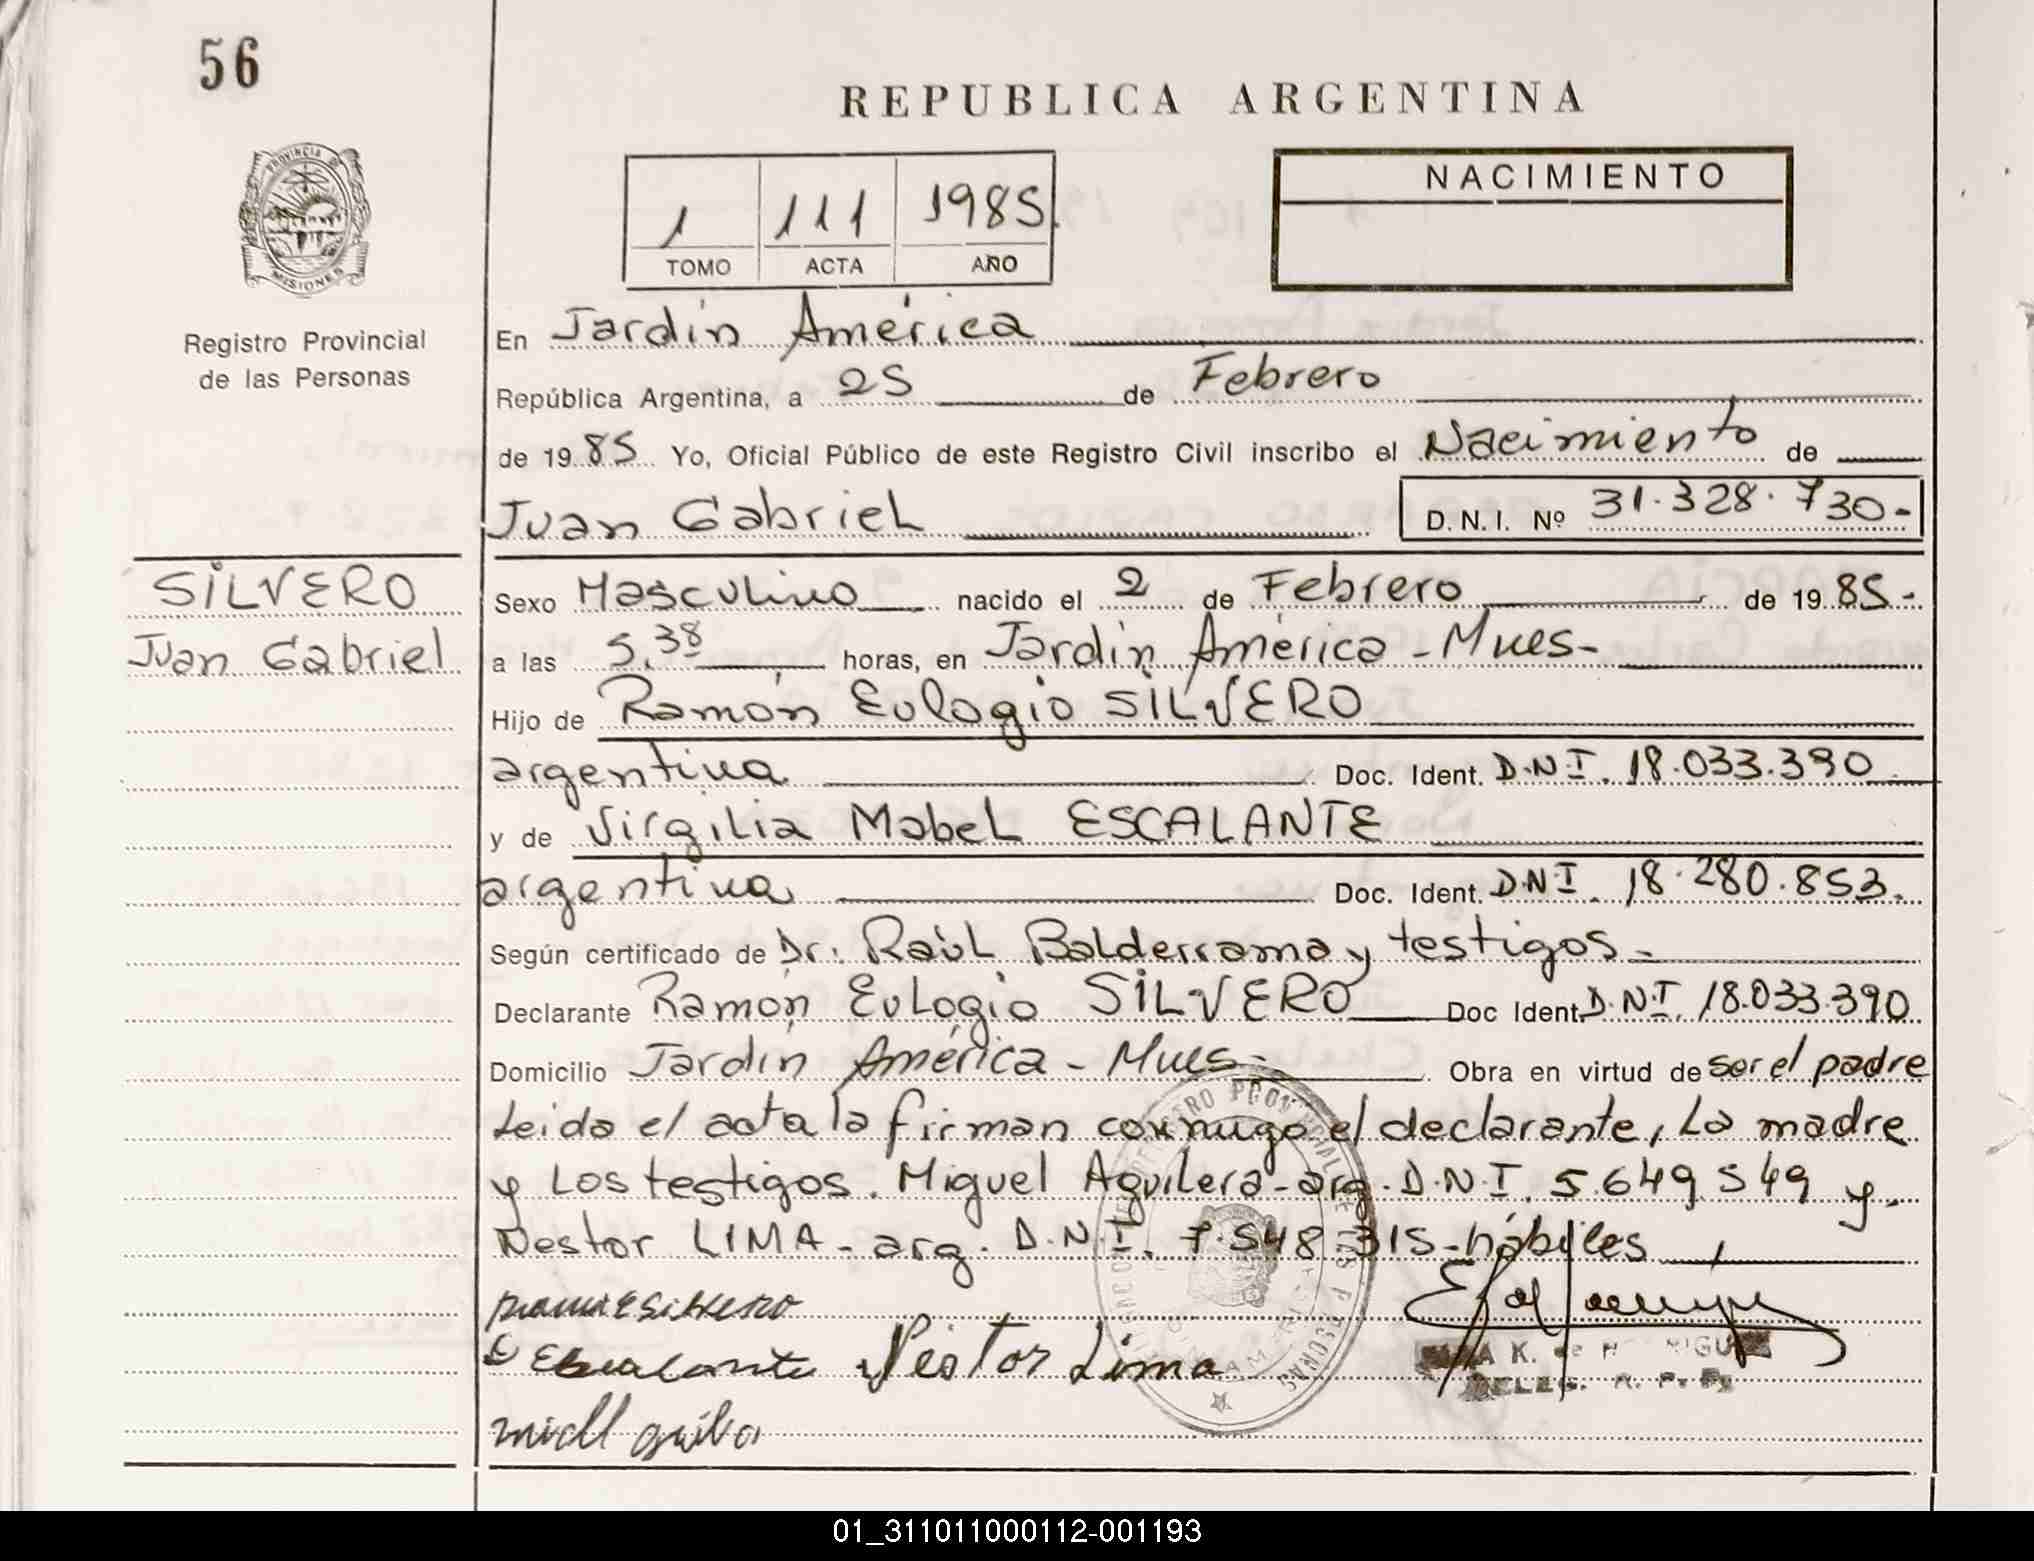 56
REPUBLICA ARGENTINA
PROVINCIA DE
MISIONES
Registro Provincial
de las Personas
1 111 1985.
TOMO ACTA AÑO
NACIMIENTO
En Jardín América
República Argentina, a 25 de Febrero
de 1985 Yo, Oficial Público de este Registro Civil inscribo el Nacimiento de
Juan Gabriel D.N.I. Nº 31.328.730-
SILVERO
Juan Gabriel
Sexo Masculino nacido el 2 de Febrero de 1985-
a las 5.38 horas, en Jardín América - Mnes-
Hijo de Ramón Eulogio SILVERO
argentina Doc. Ident. D.N.I. 18.033.390
y de Virgilia Mabel ESCALANTE
argentina Doc. Ident. D.N.I. 18.280.853.
Según certificado de Dr. Raúl Balderrama y testigos-
Declarante Ramón Eulogio SILVERO Doc Ident. D.N.I. 18.033.390
Domicilio Jardín América - Mnes- Obra en virtud de ser el padre
Leida el acta la firman conmigo el declarante, La madre
y Los testigos. Miguel Aguilera - arg. D.N.I. 5.649.549 y-
Nestor LIMA - arg. D.N.I. 7.548.315 - hábiles
Escalante Néstor Lima
K. de
DELEG. R. P. P.
01_311011000112-001193